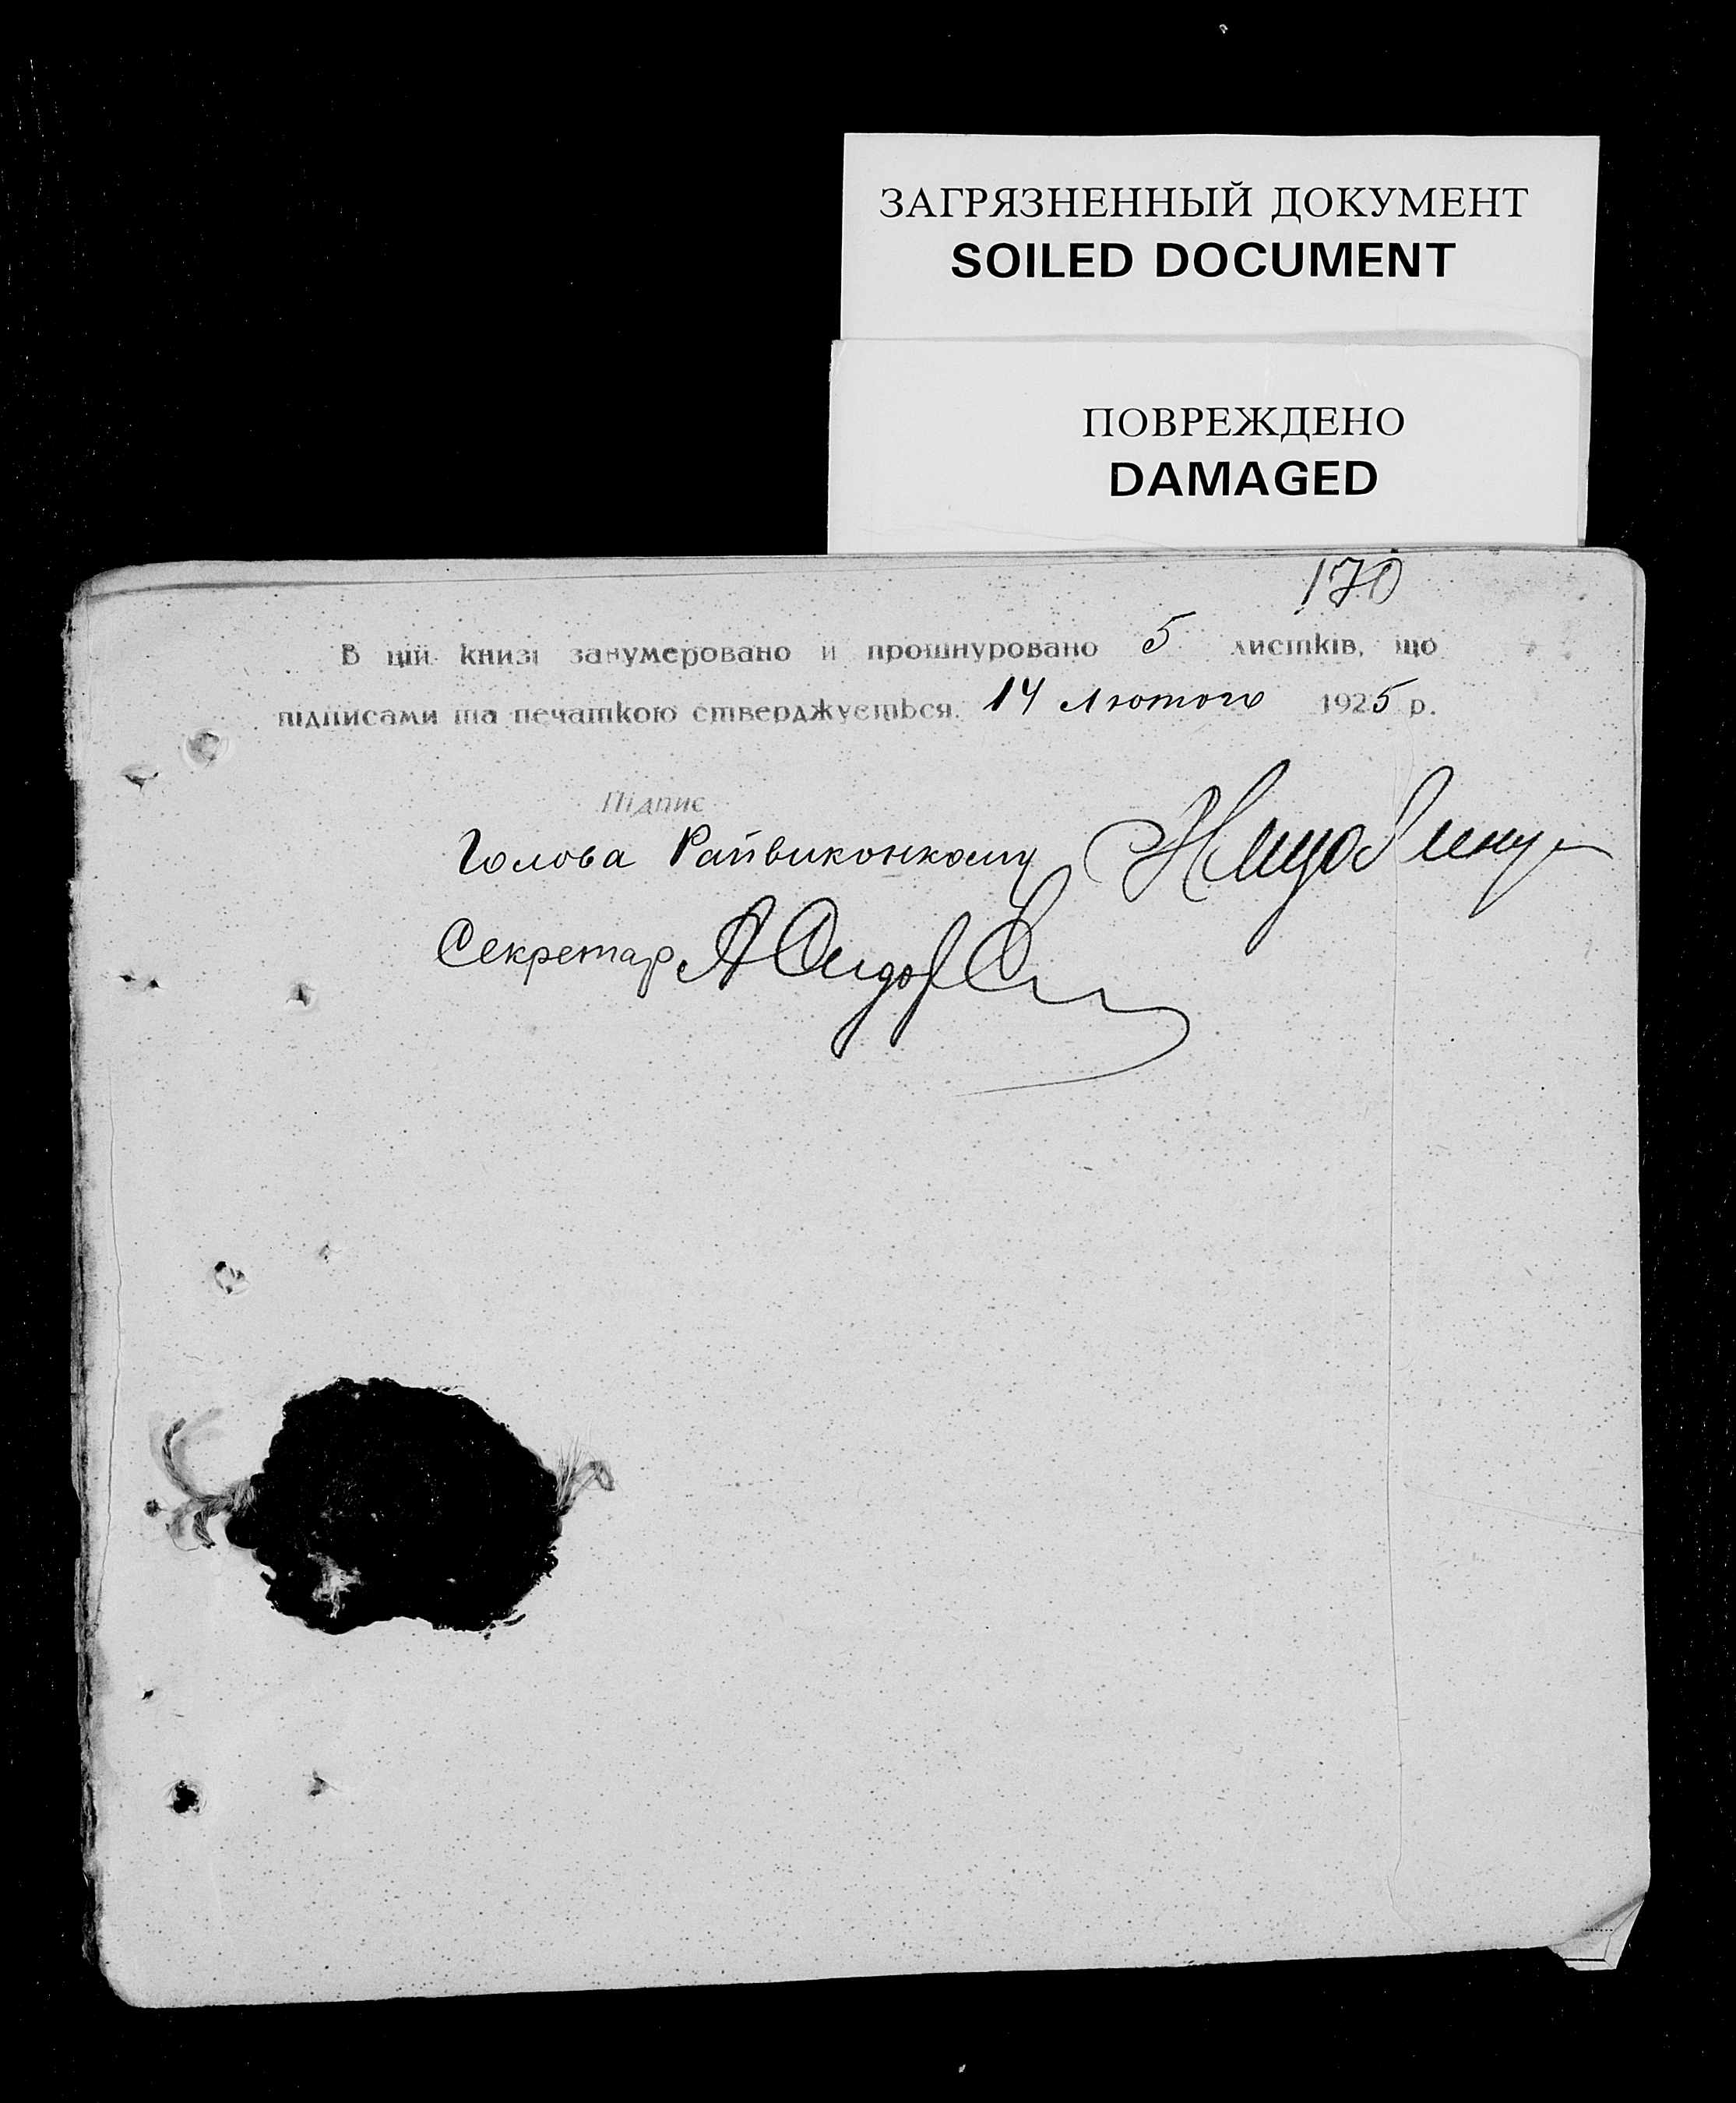 ЗАГРЯЗНЕННЫЙ ДОКУМЕНТ
SOILED DOCUMENT
ПОВРЕЖДЕНО
DAMAGED
170
В цій книзі занумеровано и прошнуровано 5 листків, що
підписами та печаткою стверджується. 14 лютого 1925 р.
Підпис
Голова Райвиконкому
Секретар